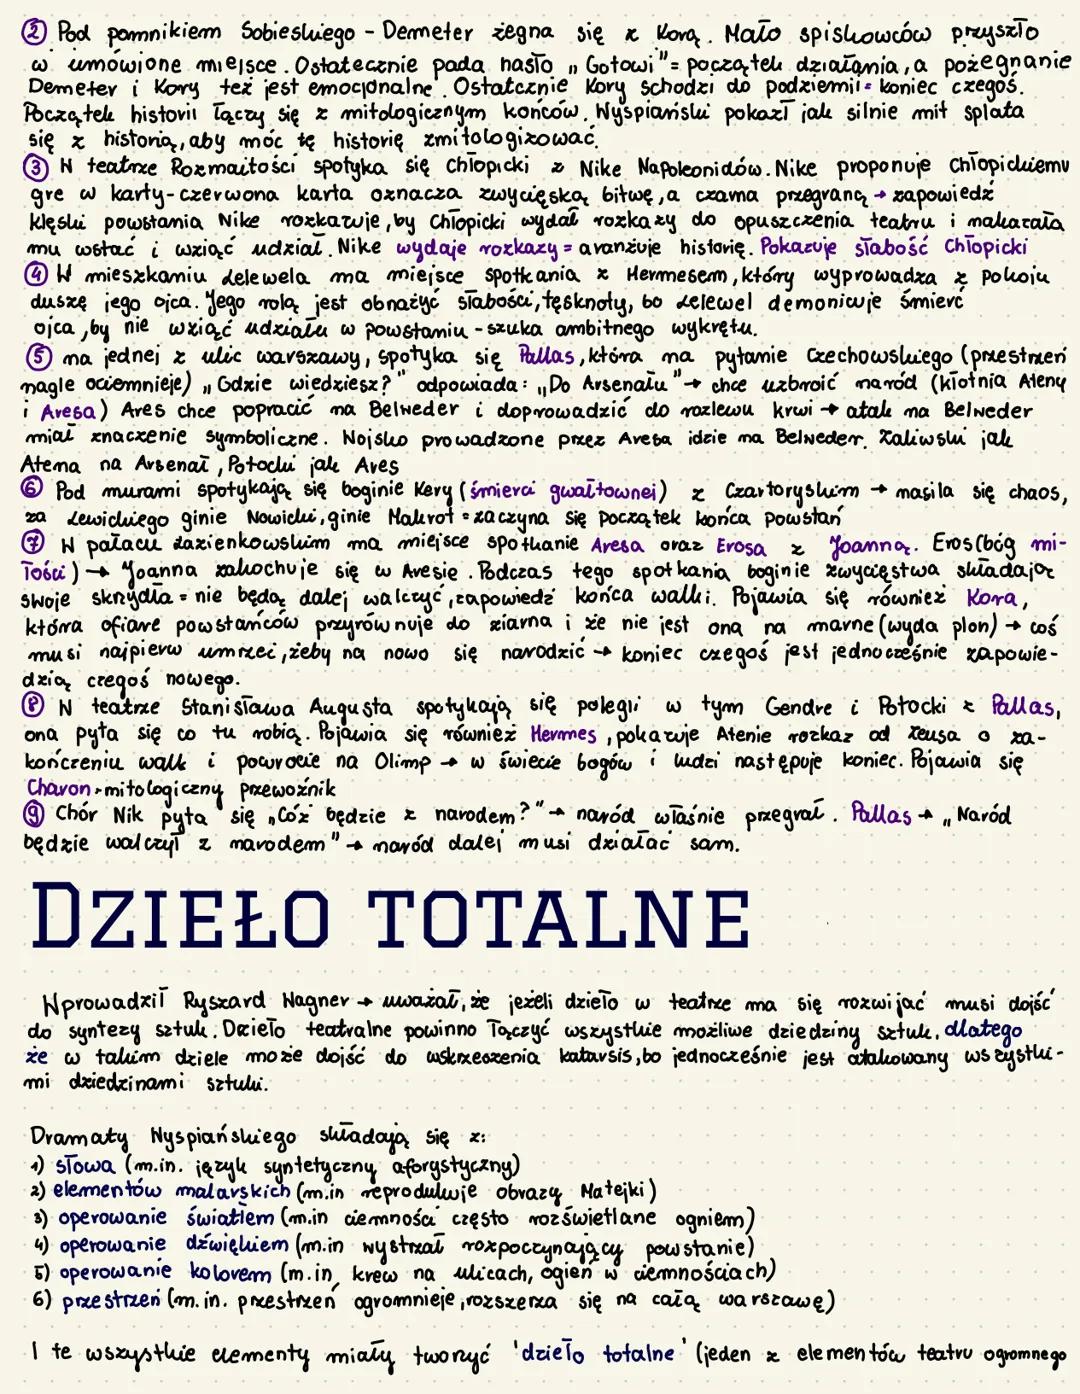 ② Pod pomnikiem Sobieskiego - Demeter żegna się z Korą. Mało spiskowców przyszło
w umówione miejsce. Ostatecznie pada hasło „Gotowi" = początek działania, a pożegnanie
Demeter i Kory też jest emocjonalne. Ostatecznie Kory schodzi do podziemii = koniec czegoś.
Początek historii łączy się z mitologicznym końców. Wyspiański pokazł jak silnie mit splata
się z historią, aby móc tę historię zmitologizować.
③ W teatrze Rozmaitości spotyka się Chłopicki z Nike Napoleonidów. Nike proponuje Chłopickiemu
gre w karty - czerwona karta oznacza zwycięską bitwę, a czarna przegraną → zapowiedź
klęski powstania Nike rozkazuje, by Chłopicki wydał rozkazy do opuszczenia teatru i nakazała
mu wstać i wziąć udział. Nike wydaje rozkazy = aranżuje historię. Pokazuje słabość Chłopicki
④ W mieszkaniu Lelewela ma miejsce spotkania z Hermesem, który wyprowadza z pokoju
duszę jego ojca. Jego rolą jest obnażyć słabości, tęsknoty, bo Lelewel demonicuje śmierć
ojca, by nie wziąć udziału w powstaniu - szuka ambitnego wykrętu.
⑤ na jednej z ulic warszawy, spotyka się Pallas, która na pytanie Czechowskiego (przestrzeń
nagle ociemnieje) „Gdzie wiedziesz?" odpowiada: „Do Arsenału" → chce uzbroić naród (kłótnia Ateny
i Aresa) Ares chce popracić na Belweder i doprowadzić do rozlewu krwi → atak na Belweder
miał znaczenie symboliczne. Wojsko prowadzone przez Aresa idzie na Belweder. Zaliwski jak
Atena na Arsenał, Potocki jak Ares
⑥ Pod murami spotykają się boginie Kery (śmierci gwałtownej) z Czartoryskim → nasila się chaos,
za Lewickiego ginie Nowicki, ginie Makrot = zaczyna się początek końca powstań
⑦ W pałacu Łazienkowskim ma miejsce spotkanie Aresa oraz Erosa z Joanną. Eros (bóg mi-
łości) → Joanna zakochuje się w Aresie. Podczas tego spotkania boginie zwycięstwa składają
swoje skrzydła = nie będą dalej walczyć, zapowiedź końca walki. Pojawia się również Kora,
która ofiare powstańców przyrównuje do ziarna i że nie jest ona na marne (wyda plon) → coś
musi najpierw umrzeć, żeby na nowo się narodzić → koniec czegoś jest jednocześnie zapowie-
dzią czegoś nowego.
⑧ W teatrze Stanisława Augusta spotykają się polegli w tym Gendre i Potocki z Pallas,
ona pyta się co tu robią. Pojawia się również Hermes, pokazuje Atenie rozkaz od Zeusa o za-
kończeniu walk i powrocie na Olimp → w świecie bogów i ludzi następuje koniec. Pojawia się
Charon - mitologiczny przewoźnik
⑨ Chór Nik pyta się „Cóż będzie z narodem?" → naród właśnie przegrał. Pallas → „Naród
będzie walczył z narodem" → naród dalej musi działać sam.
DZIEŁO TOTALNE
Wprowadził Ryszard Wagner → uważał, że jeżeli dzieło w teatrze ma się rozwijać musi dojść
do syntezy sztuk. Dzieło teatralne powinno łączyć wszystkie możliwe dziedziny sztuk, dlatego
że w takim dziele może dojść do wskrzeszenia katarsis, bo jednocześnie jest atakowany wszystki-
mi dziedzinami sztuki.
Dramaty Wyspiańskiego składają się z:
1) słowa (m.in. język syntetyczny aforystyczny)
2) elementów malarskich (m.in reprodukuje obrazy Matejki)
3) operowanie światłem (m.in ciemności często rozświetlane ogniem)
4) operowanie dźwiękiem (m.in wystrzał rozpoczynający powstanie)
5) operowanie kolorem (m.in. krew na ulicach, ogień w ciemnościach)
6) przestrzeń (m.in. przestrzeń ogromnieje, rozszerza się na całą warszawę)
I te wszystkie elementy miały tworzyć 'dzieło totalne' (jeden z elementów teatru ogromnego